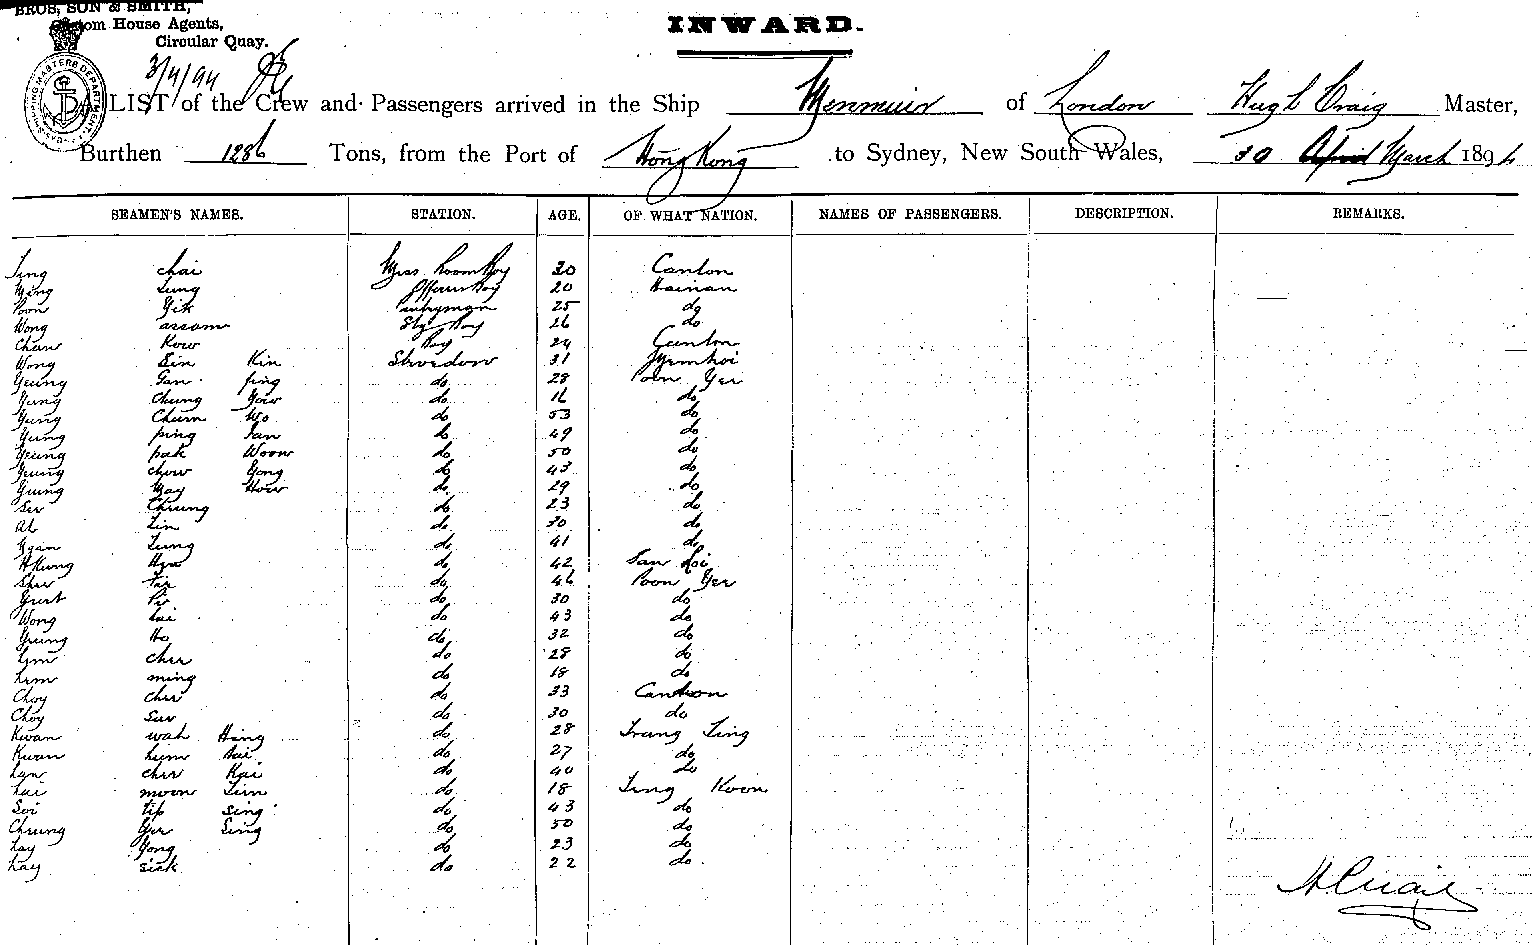 BROS, SON & SMITH,
Custom House Agents,
Circular Quay.
INWARD.
3/4/94
A LIST of the Crew and Passengers arrived in the Ship Menmuir of London Hugh Craig Master,
Burthen 1286 Tons, from the Port of Hong Kong to Sydney, New South Wales, 30 April March 1894
SEAMEN'S NAMES. STATION. AGE. OF WHAT NATION. NAMES OF PASSENGERS. DESCRIPTION. REMARKS.
chai Mess Room Boy 30 Canton
Ming Lung Officers Boy 20 Hainan
Poon Yik Pantryman 25 do
Wong assam Boy 26 do
Chan Kow Boy 24 Canton
Wong Sin Kin 31
Yeung Gan 28 Poon Yer
Yung Chung Yow do 16 do
Yung Chum Wo do 53 do
Yung ping do 49 do
Yeung pak Woon do 50 do
Yeung chow Yong do 43 do
Yeung Way How do 29 do
Ser Cheung do 23 do
Ah Lin do 30 do
Lung do 41 do
do 42 San
do 46 Poon Yer
do 30 do
Wong Lai do 43 do
Yeung Ho do 32 do
Lym cher do 28 do
Lum ming do 18 do
Choy cher do 33 Canton
Choy Sur do 30 do
Kwan wah Hing do 28 Trung Ling
Kwan do 27 do
cher Kai do 40 do
Lai moon do 18 Tung Koon
Soi tip Sing do 43 do
Cheung Yer Sing do 50 do
Lay Yong do 23 do
Lay sick do 22 do
H Craig